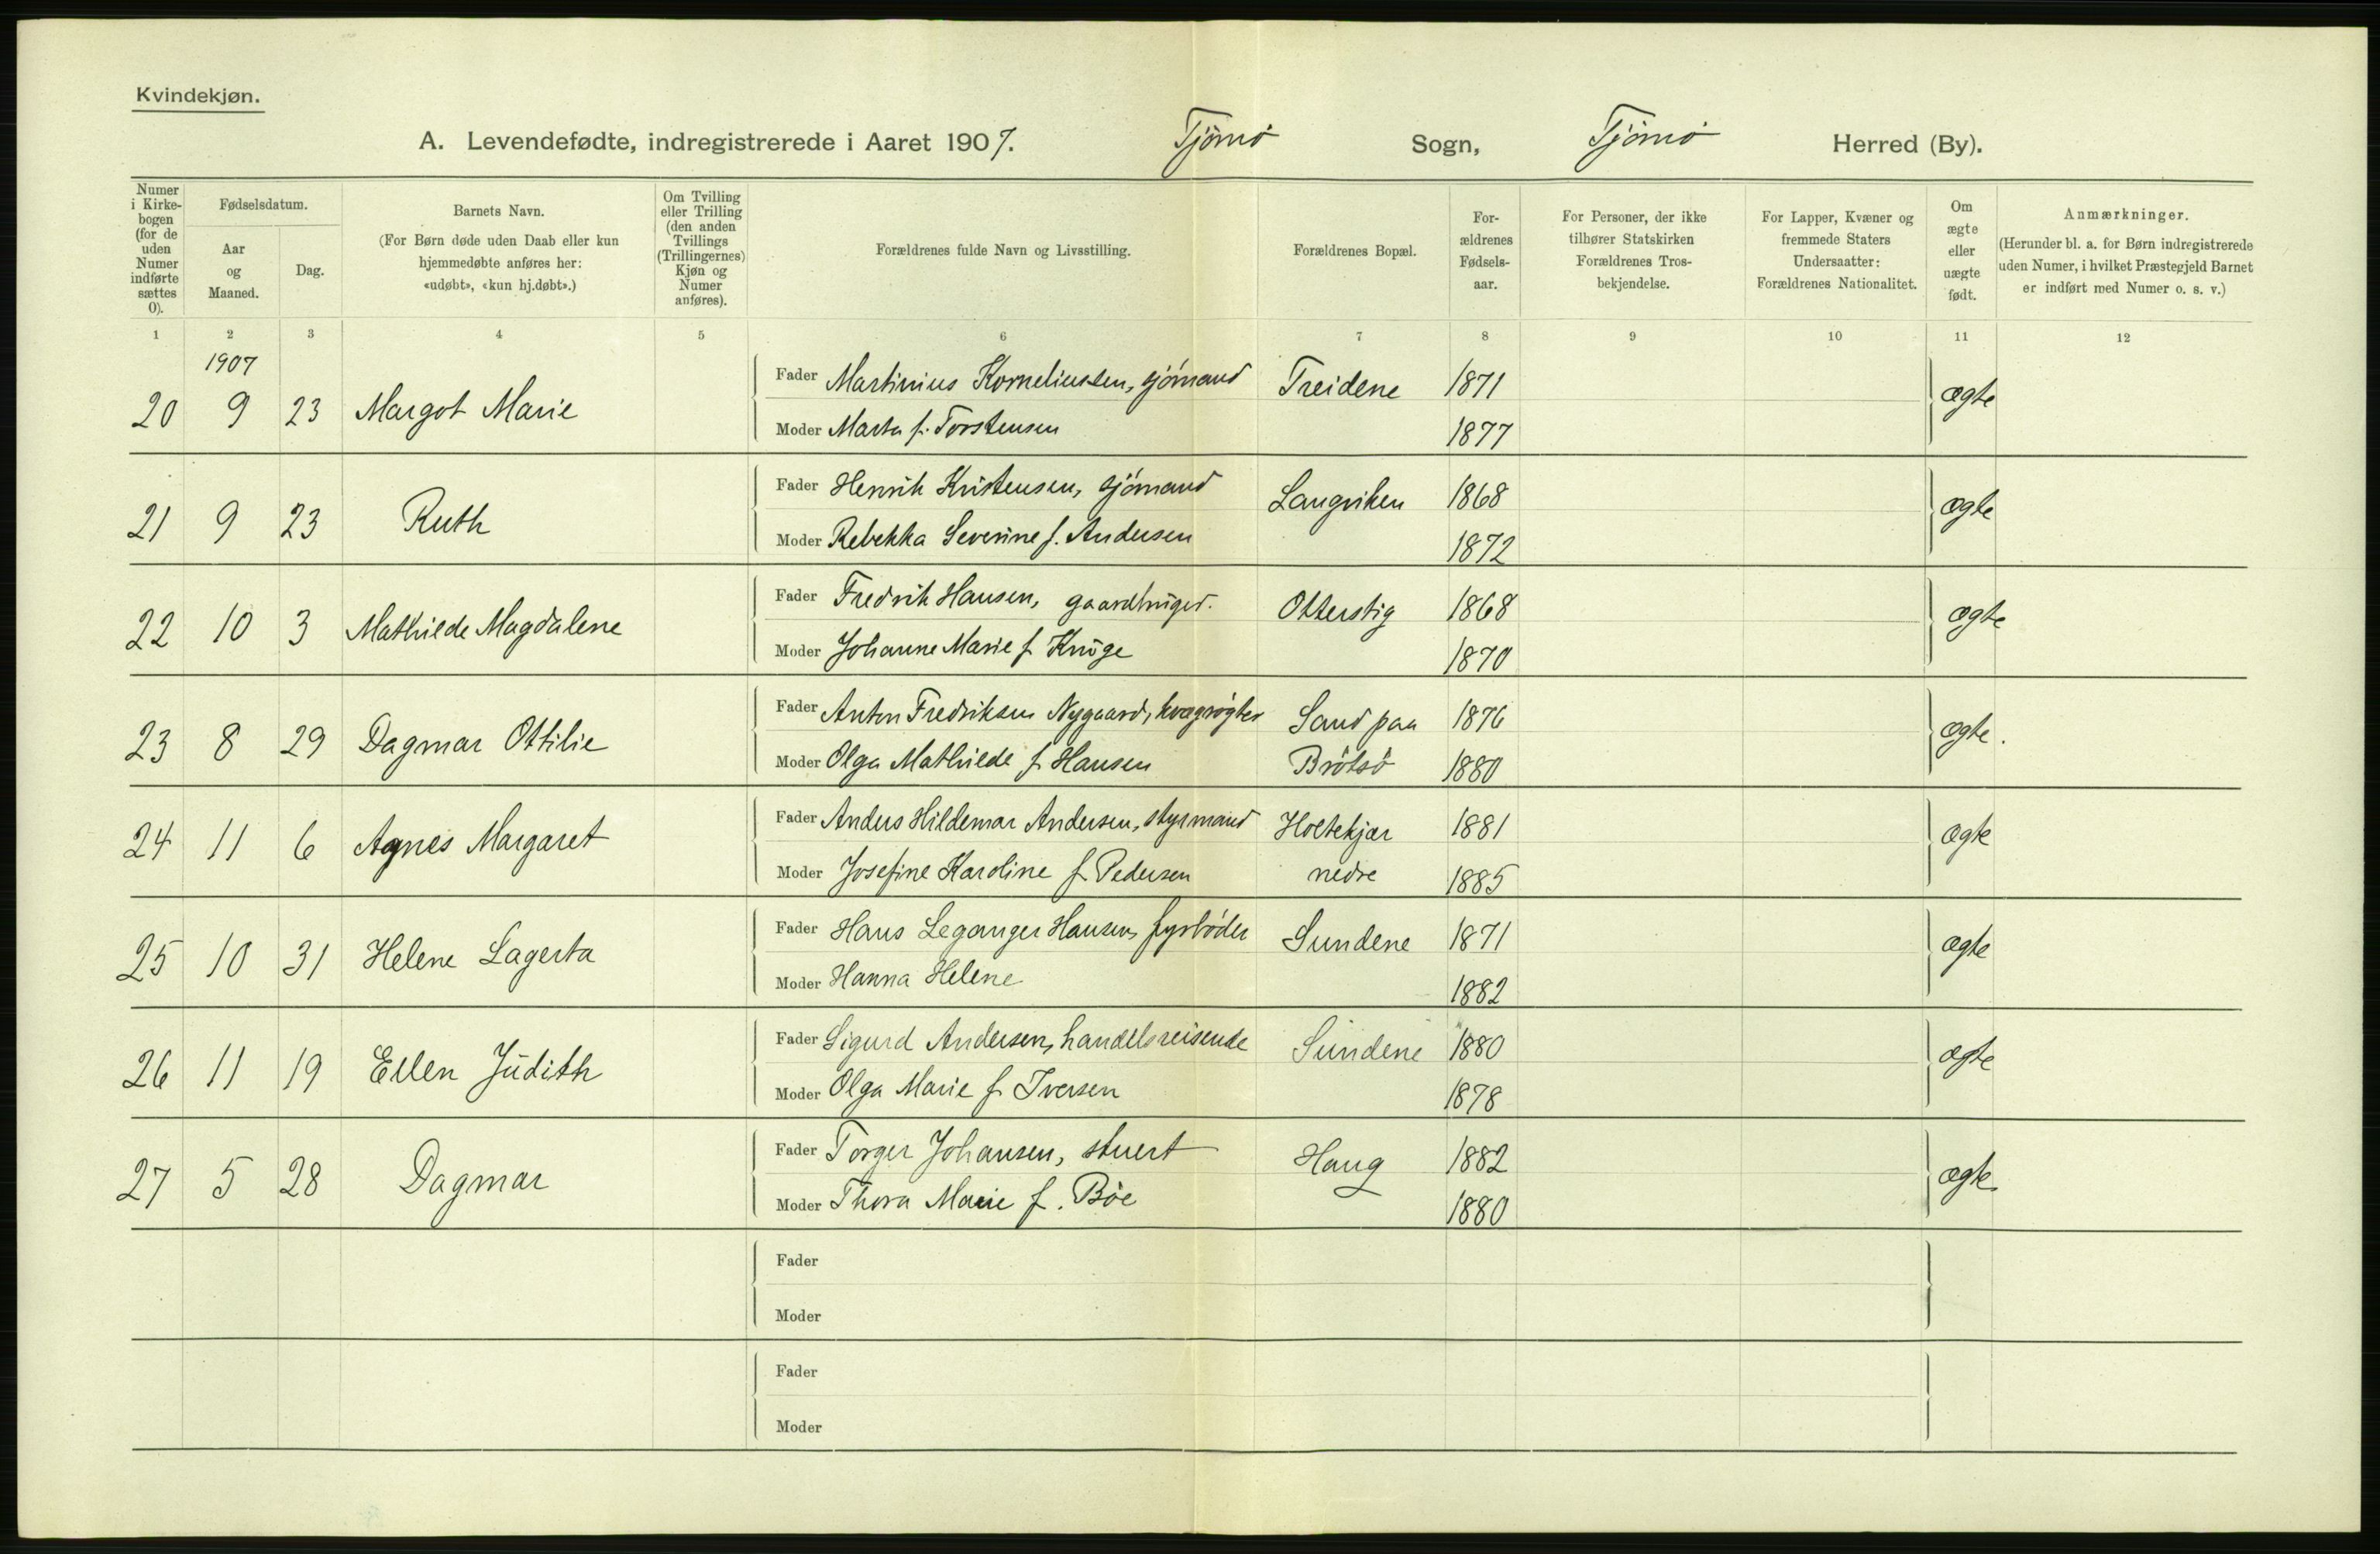 Kvindekjøn.
A. Levendefødte, indregistrerede i Aaret 1907. Tjömö Sogn, Tjömö Herred (By).
Numer i Kirkebogen (for de uden Numer indførte sættes 0).
Fødselsdatum.
Aar og Maaned.
Dag.
Barnets Navn.
(For Børn døde uden Daab eller kun hjemmedøbte anføres her: «udøbt», «kun hj.døbt».)
Om Tvilling eller Trilling (den anden Tvillings (Trillingernes) Kjøn og Numer anføres).
Forældrenes fulde Navn og Livsstilling.
Forældrenes Bopæl.
Forældrenes Fødselsaar.
For Personer, der ikke tilhører Statskirken Forældrenes Trosbekjendelse.
For Lapper, Kvæner og fremmede Staters Undersaatter: Forældrenes Nationalitet.
Om ægte eller uægte født.
Anmærkninger.
(Herunder bl. a. for Børn indregistrerede uden Numer, i hvilket Præstegjeld Barnet er indført med Numer o. s. v.)
1 2 3 4 5 6 7 8 9 10 11 12
1907
20 9 23 Margot Marie Fader Martinius Korneliussen, sjömand Treidene 1871 ægte
Moder Marta f. Torstensen 1877
21 9 23 Ruth Fader Henrik Kristensen, sjömand Langviken 1868 ægte
Moder Rebekka Severine f. Andersen 1872
22 10 3 Mathilde Magdalene Fader Fredrik Hansen, gaardbruger. Otterstig 1868 ægte
Moder Johanne Marie f. Krüge 1870
23 8 29 Dagmar Ottilie Fader Anton Fredriksen Nygaard, kvægrögter Sand paa 1876 ægte.
Moder Olga Mathilde f. Hansen Brötsö 1880
24 11 6 Agnes Margaret Fader Anders Hildemar Andersen, styrmand Holtekjær 1881 ægte
Moder Josefine Karoline f. Pedersen nedre 1885
25 10 31 Helene Lagerta Fader Hans Leganger Hansen, fyrböder Sundene 1871 ægte
Moder Hanna Helene 1882
26 11 19 Ellen Judith Fader Sigurd Andersen, handelsreisende Sundene 1880 ægte
Moder Olga Marie f. Iversen 1878
27 5 28 Dagmar Fader Torger Johansen, stuert Haug 1882 ægte
Moder Thora Marie f. Böe 1880
Fader
Moder
Fader
Moder